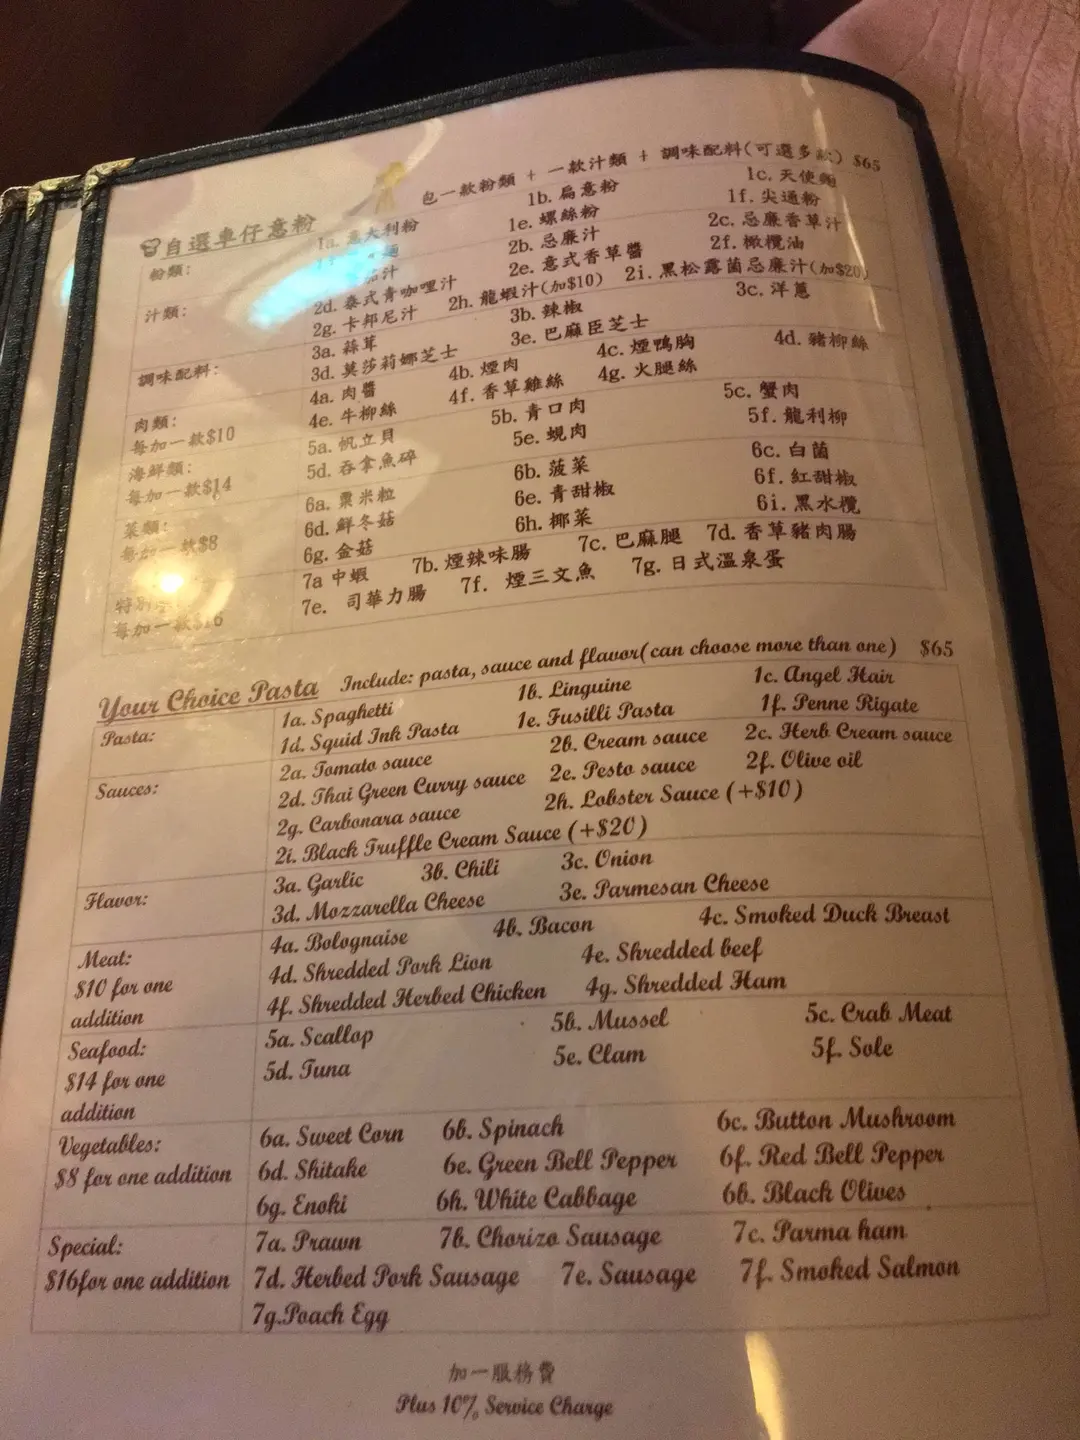 包一款粉類 + 一款汁類 + 調味配料(可選多款) $65
自選車仔意粉
粉類: 1a. 意大利粉 1b. 扁意粉 1c. 天使麵
麵 1e. 螺絲粉 1f. 尖通粉
汁類: 茄汁 2b. 忌廉汁 2c. 忌廉香草汁
2d. 泰式青咖哩汁 2e. 意式香草醬 2f. 橄欖油
2g. 卡邦尼汁 2h. 龍蝦汁(加$10) 2i. 黑松露菌忌廉汁(加$20)
調味配料: 3a. 蒜茸 3b. 辣椒 3c. 洋蔥
3d. 莫莎莉娜芝士 3e. 巴麻臣芝士
肉類: 4a. 肉醬 4b. 煙肉 4c. 煙鴨胸 4d. 豬柳絲
每加一款$10 4e. 牛柳絲 4f. 香草雞絲 4g. 火腿絲
海鮮類: 5a. 帆立貝 5b. 青口肉 5c. 蟹肉
每加一款$14 5d. 吞拿魚碎 5e. 蜆肉 5f. 龍利柳
菜類: 6a. 粟米粒 6b. 菠菜 6c. 白菌
每加一款$8 6d. 鮮冬菇 6e. 青甜椒 6f. 紅甜椒
6g. 金菇 6h. 椰菜 6i. 黑水欖
特別 7a 中蝦 7b. 煙辣味腸 7c. 巴麻腿 7d. 香草豬肉腸
每加一款$16 7e. 司華力腸 7f. 煙三文魚 7g. 日式溫泉蛋
Your Choice Pasta Include: pasta, sauce and flavor(can choose more than one) $65
Pasta: 1a. Spaghetti 1b. Linguine 1c. Angel Hair
1d. Squid Ink Pasta 1e. Fusilli Pasta 1f. Penne Rigate
Sauces: 2a. Tomato sauce 2b. Cream sauce 2c. Herb Cream sauce
2d. Thai Green Curry sauce 2e. Pesto sauce 2f. Olive oil
2g. Carbonara sauce 2h. Lobster Sauce (+$10)
2i. Black Truffle Cream Sauce (+$20)
Flavor: 3a. Garlic 3b. Chili 3c. Onion
3d. Mozzarella Cheese 3e. Parmesan Cheese
Meat: 4a. Bolognaise 4b. Bacon 4c. Smoked Duck Breast
$10 for one 4d. Shredded Pork Lion 4e. Shredded beef
addition 4f. Shredded Herbed Chicken 4g. Shredded Ham
Seafood: 5a. Scallop 5b. Mussel 5c. Crab Meat
$14 for one 5d. Tuna 5e. Clam 5f. Sole
addition
Vegetables: 6a. Sweet Corn 6b. Spinach 6c. Button Mushroom
$8 for one addition 6d. Shitake 6e. Green Bell Pepper 6f. Red Bell Pepper
6g. Enoki 6h. White Cabbage 6b. Black Olives
Special: 7a. Prawn 7b. Chorizo Sausage 7c. Parma ham
$16for one addition 7d. Herbed Pork Sausage 7e. Sausage 7f. Smoked Salmon
7g.Poach Egg
加一服務費
Plus 10% Service Charge